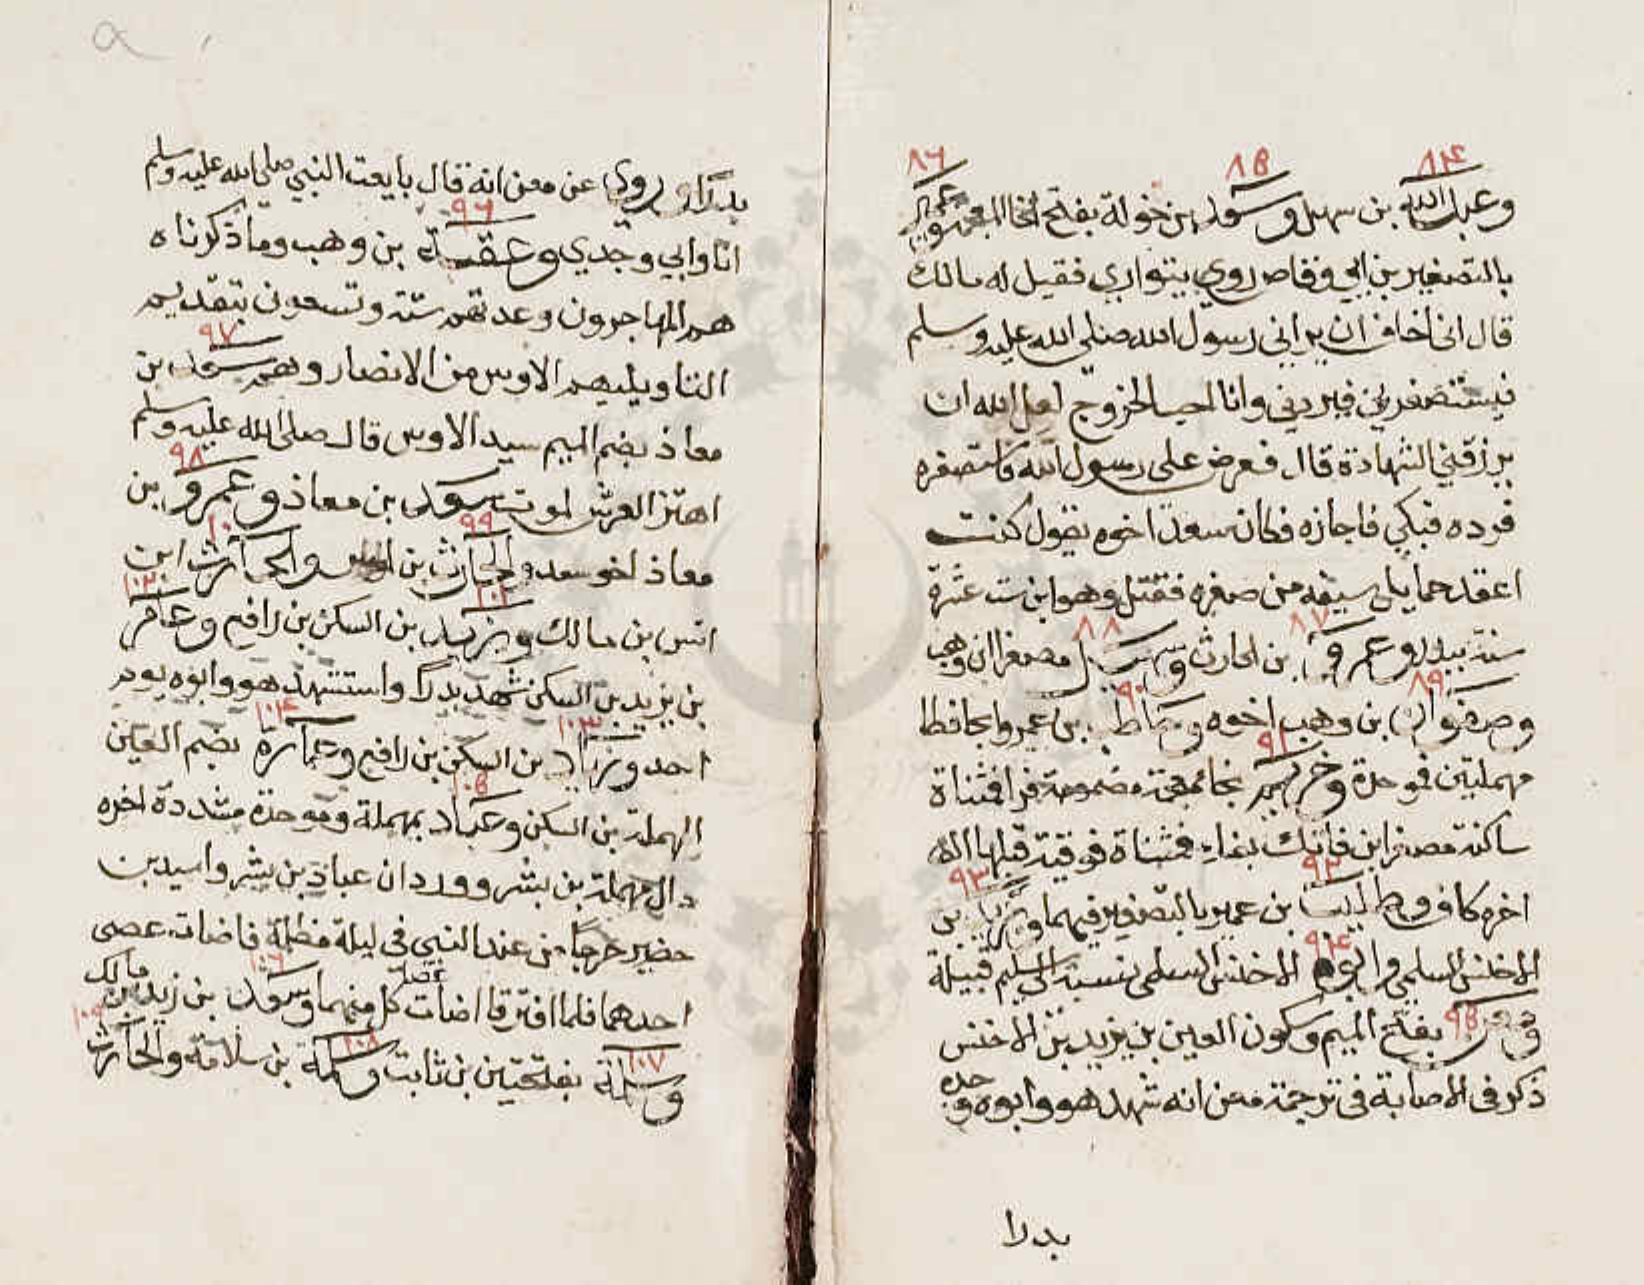 ٨٤ ٨٥ ٨٦
وعبد الله بن سهيل وسعد بن خولة بفتح الخا المعجمة وعمير
بالتصغير بن ابي وقاص روي يتواري فقيل له مالك
قال اني اخاف ان يراني رسول الله صلي الله عليه وسلم
فيستصغرني فيردني وانا احب الخروج لعل الله ان
يرزقني الشهادة قال فعرض علي رسول الله فاستصغره
فرده فبكي فاجازه فكان سعدا اخوه يقول كنت
اعقد حمايل سيفه من صغره فقتل وهو ابن ست عشرة
٨٧ ٨٨
سنة ببدر وعمرو بن الحارث وسهيل مصغرا ابن وهب
٨٩ ٩٠
وصفوان بن وهب اخوه وحاطب بن عمرو بحا فطا
٩١
مهملتين فموحدة وخريم بخا معجمة مضمومة فرا فمثناة
ساكنة مصغرا بن فاتك بفاء فمثناة فوقية قبلها الف
٩٢ ٩٣
اخره كاف وطليب بن عمير بالتصغير فيهما ويزيد بن
٩٤
الاخنس السلمي وابوه الاخنس السلمي نسبة الي سليم قبيلة
٩٥
ومعن بفتح الميم وسكون العين بن يزيد بن الاخنس
ذكر في الاصابة في ترجمة معن انه شهد هو وابوه وجده
بدرا
بدرا روي عن معن انه قال بايعت النبي صلي الله عليه وسلم
٩٦
انا وابي وجدي وعقبة بن وهب وما ذكرناه
هم المهاجرون وعدتهم ستة وتسعون بتقديم
٩٧
التا ويليهم الاوس من الانصار وهم سعد بن
معاذ بضم الميم سيد الاوس قال صلي الله عليه وسلم
٩٨
اهتز العرش لموت سعد بن معاذ وعمرو بن
٩٩ ١٠٠
معاذ اخو سعد والحارث بن اوس والحارث ابن
١٠١ ١٠٢
انس بن مالك ويزيد بن السكن بن رافع وعامر
بن يزيد بن السكن شهد بدرا واستشهد هو وابوه يوم
١٠٣ ١٠٤
احد وزياد بن السكن بن رافع وعمارة بضم العين
١٠٥
المهملة بن السكن وعباد بمهملة وموحدة مشددة اخره
دال مهملة بن بشر وورد ان عباد بن بشر واسيد بن
حضير خرجا من عند النبي في ليلة مظلمة فاضات عصي
١٠٦
احدهما فلما افترقا اضات عصا كل منهما وسعد بن زيد بن مالك
١٠٧ ١٠٨ ١٠٩
وسلمة بفتحتين بن ثابت وسلمة بن سلامة والحارث